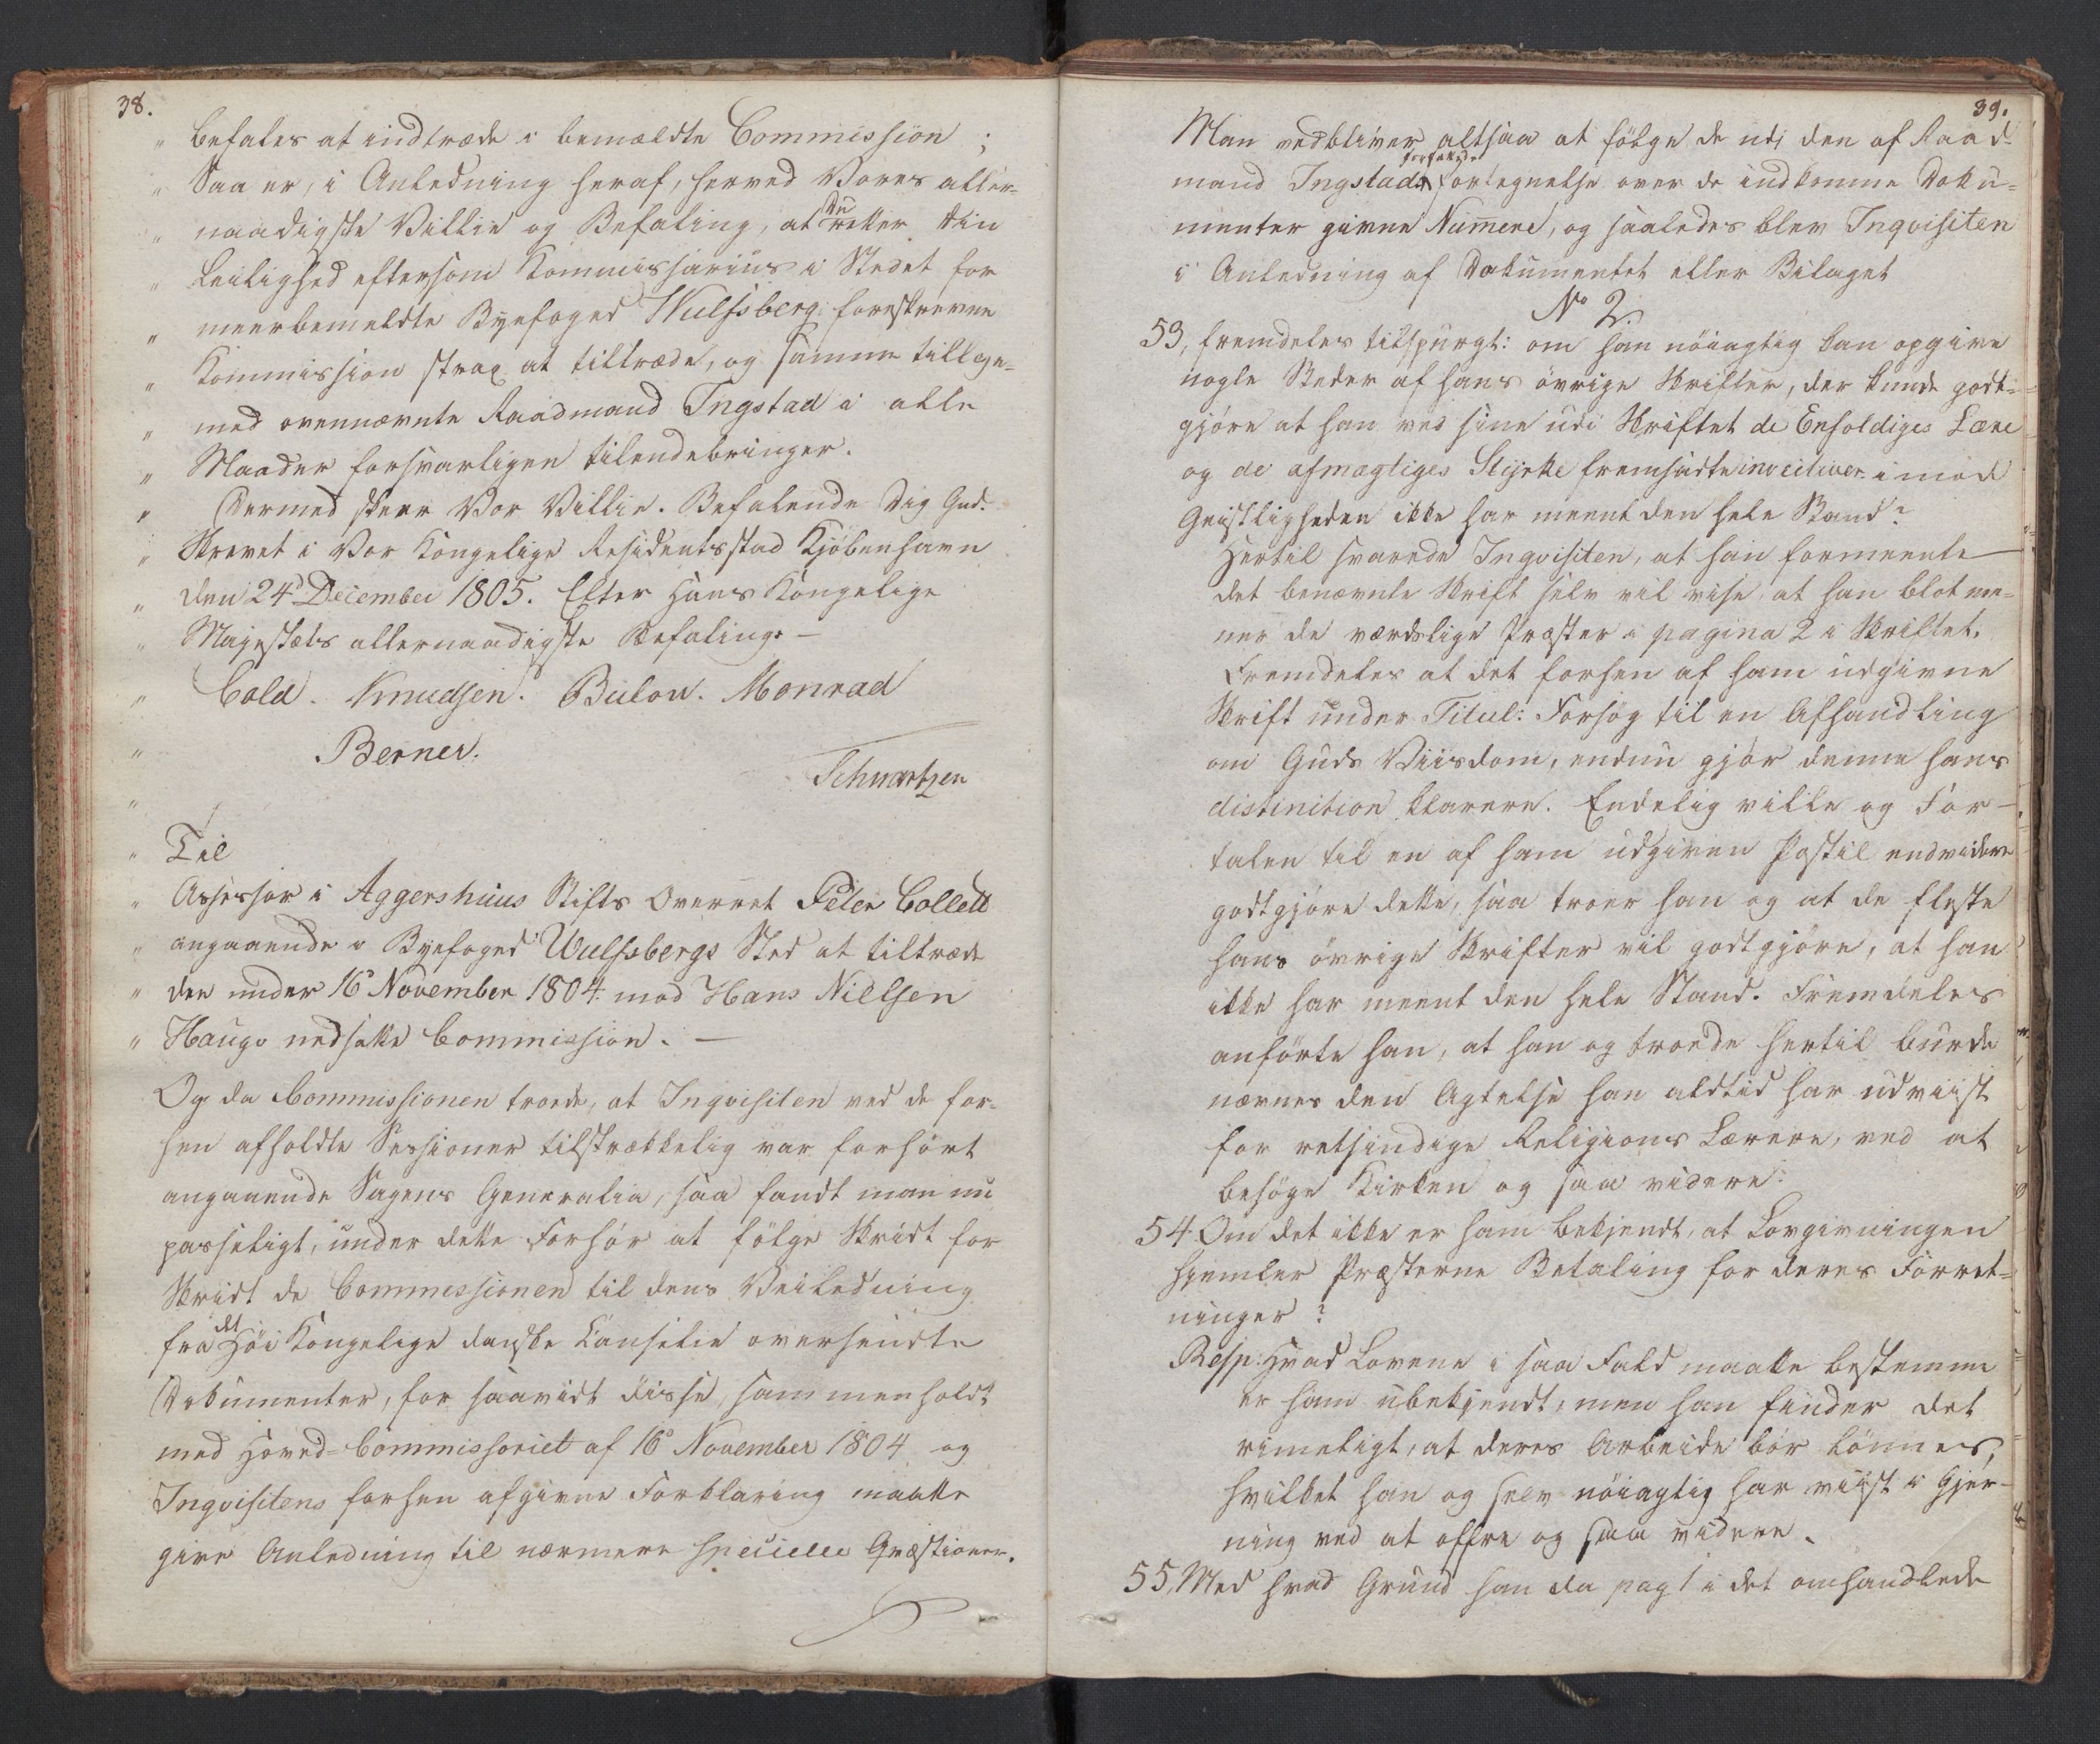 38.
" befales at indtræde i bemældte Commission ;
" Saa er, i Anledning heraf, herved Vores aller-
" naadigste Villie og Befaling, at Du retter din
" Leilighed eftersom Kommissarius i Stedet for
" meerbemeldte Byefoged Wulfsberg forestrevne
" Kommission strax at tiltræde, og samme tillige-
" med ovennævnte Raadmand Ingstad i alle
" Maader forsvarligen tilendebringer.
" Dermed skeer Vor Villie. Befalende Dig Gud.
" Skrevet i Vor Kongelige Residentsstad Kjöbenhavn
" den 24d December 1805. Efter Hans Kongelige
" Majestæts allernaadigste Befaling. —
" Cold. Knudsen. Bülow. Monrad
" Berner.
Schwartzen
"
" Til
" Assessor i Aggershuus Stifts Overret Peter Collett
" angaaende i Byefoged Wulfsbergs Sted at tiltræde
" den under 16d November 1804 mod Hans Nielsen
" Hauge nedsatte Commission. —
Og da Commissionen troede, at Inqvisiten ved de for-
hen afholdte Sessioner tilstrækkelig var forhört
angaaende Sagens Generalia, saa fandt man nu
passeligt, under dette Forhör at fölge Skridt for
Skridt de Commissionen til dens Veiledning
fra det Höi Kongelige danske Cansellie oversendte
Dokumenter, for saavidt disse, sammenholdt
med Hoved-Commissoriet af 16d November 1804 og
Inqvisitens forhen afgivne Forklaring maatte
give Anledning til nærmere specielle Qvæstioner.
39.
Man vedbliver altsaa at fölge de udi den af Raad-
mand Ingstad forfattede fortegnelse over de indkomne Doku-
menter givne Numere, og saaledes blev Inqvisiten
i Anledning af Dokumentet eller Bilaget
No 2.
53, fremdeles tilspurgt: om han nöiagtig kan opgive
nogle Steder af hans övrige Skrifter, der kunde godt-
gjöre at han ved sine udi Skriftet de Enfoldiges Lære
og de afmægtiges Styrke fremsadte invectiver imod
Geistligheden ikke har meent den hele Stand?
Hertil svarede Inqvisiten, at han formeente
det benævnte Skrift selv vil vise at han blot me-
ner de værdslige Præster i pagina 2 i Skriftet.
Fremdeles at det forhen af ham udgivne
Skrift under Titul: Forsög til en Afhandling
om Guds Viisdom, endnu gjör denne hans
distinition klarere. Endelig ville og For-
talen til en af ham udgiven Postil endvidere
godtgjöre dette, saa troer han og at de fleste
hans övrige Skrifter vil godtgjöre, at han
ikke har meent den hele Stand. Fremdeles
anförte han, at han og troede hertil burde
nævnes den Agtelse han aldtid har udviist
for retsindige Religions Lærere, ved at
besöge Kirken og saa videre.
54 Om det ikke er ham bekjendt, at Lovgivningen
hjemler Præsterne Betaling for deres Forret-
ninger?
Resp: Hvad Lovene i saa Fald maatte bestemme
er ham ubekjendt, men han finder det
rimeligt, at deres Arbeide bör lönnes,
hvilket han og selv nöiagtig har viist i Gjer-
ning ved at offre og saa videre.
55, Med hvad Grund han da pag 1 i det omhandlede